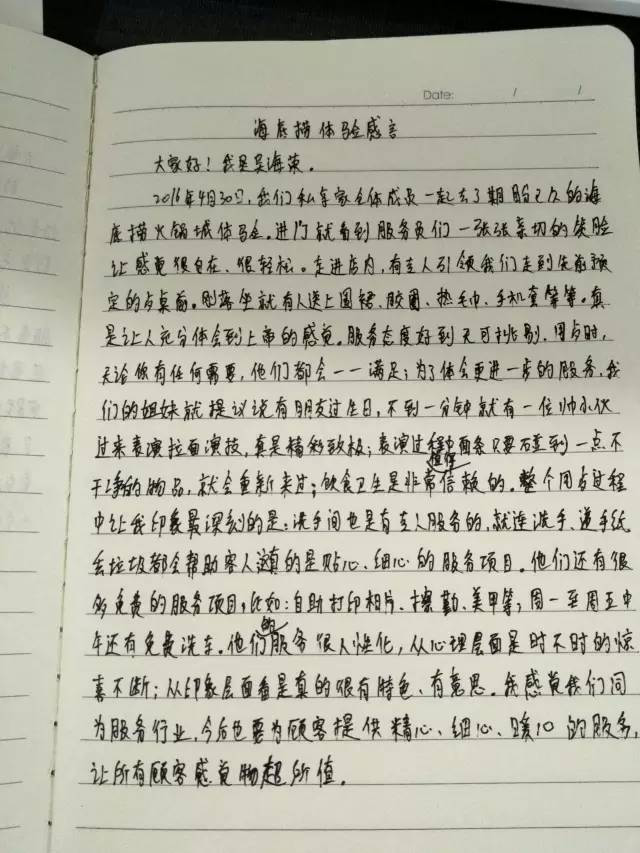 Date: / /
海底捞体验感言
大家好！我是吴海荣。
2016年4月30日，我们私享家全体成员一起去了期盼已久的海
底捞火锅城体验。进门就看到服务员们一张张亲切的笑脸
让感觉很自在、很轻松。走进店内，有专人引领我们走到先前预
定的餐桌前。刚落坐就有人送上围裙、胶圈、热毛巾、手机套等等。真
是让人充分体会到上帝的感觉。服务态度好到无可挑剔，用餐时，
无论你有任何需要，他们都会一一满足；为了体会更进一步的服务，我
们的姐妹就提议说有朋友过生日，不到一分钟就有一位帅小伙
过来表演拉面演技，真是精彩致极；表演过程中面条只要碰到一点不
干净的物品，就会重新来过；饮食卫生是非常值得信赖的。整个用餐过程
中让我印象最深刻的是：洗手间也是有专人服务的，就连洗手、递手纸
丢垃圾都会帮助客人这真的是贴心、细心的服务项目。他们还有很
多免费的服务项目，比如：自助打印相片、擦鞋、美甲等，周一至周五中
午还有免费洗车。他们的服务很人性化，从心理层面是时不时的惊
喜不断；从印象层面看是真的很有特色、有意思。我感觉我们同
为服务行业，今后也要为顾客提供精心、细心、暖心的服务，
让所有顾客感觉物超所值。